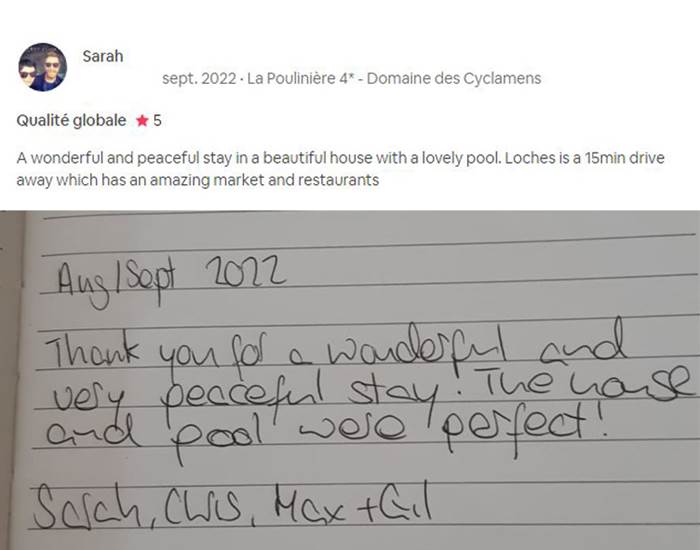 Sarah
sept. 2022 · La Poulinière 4* - Domaine des Cyclamens
Qualité globale ★ 5
A wonderful and peaceful stay in a beautiful house with a lovely pool. Loches is a 15min drive
away which has an amazing market and restaurants
Aug/Sept 2022
Thank you for a wonderful and
very peaceful stay! The house
and pool were perfect!
Sarah, Chris, Max + Gil